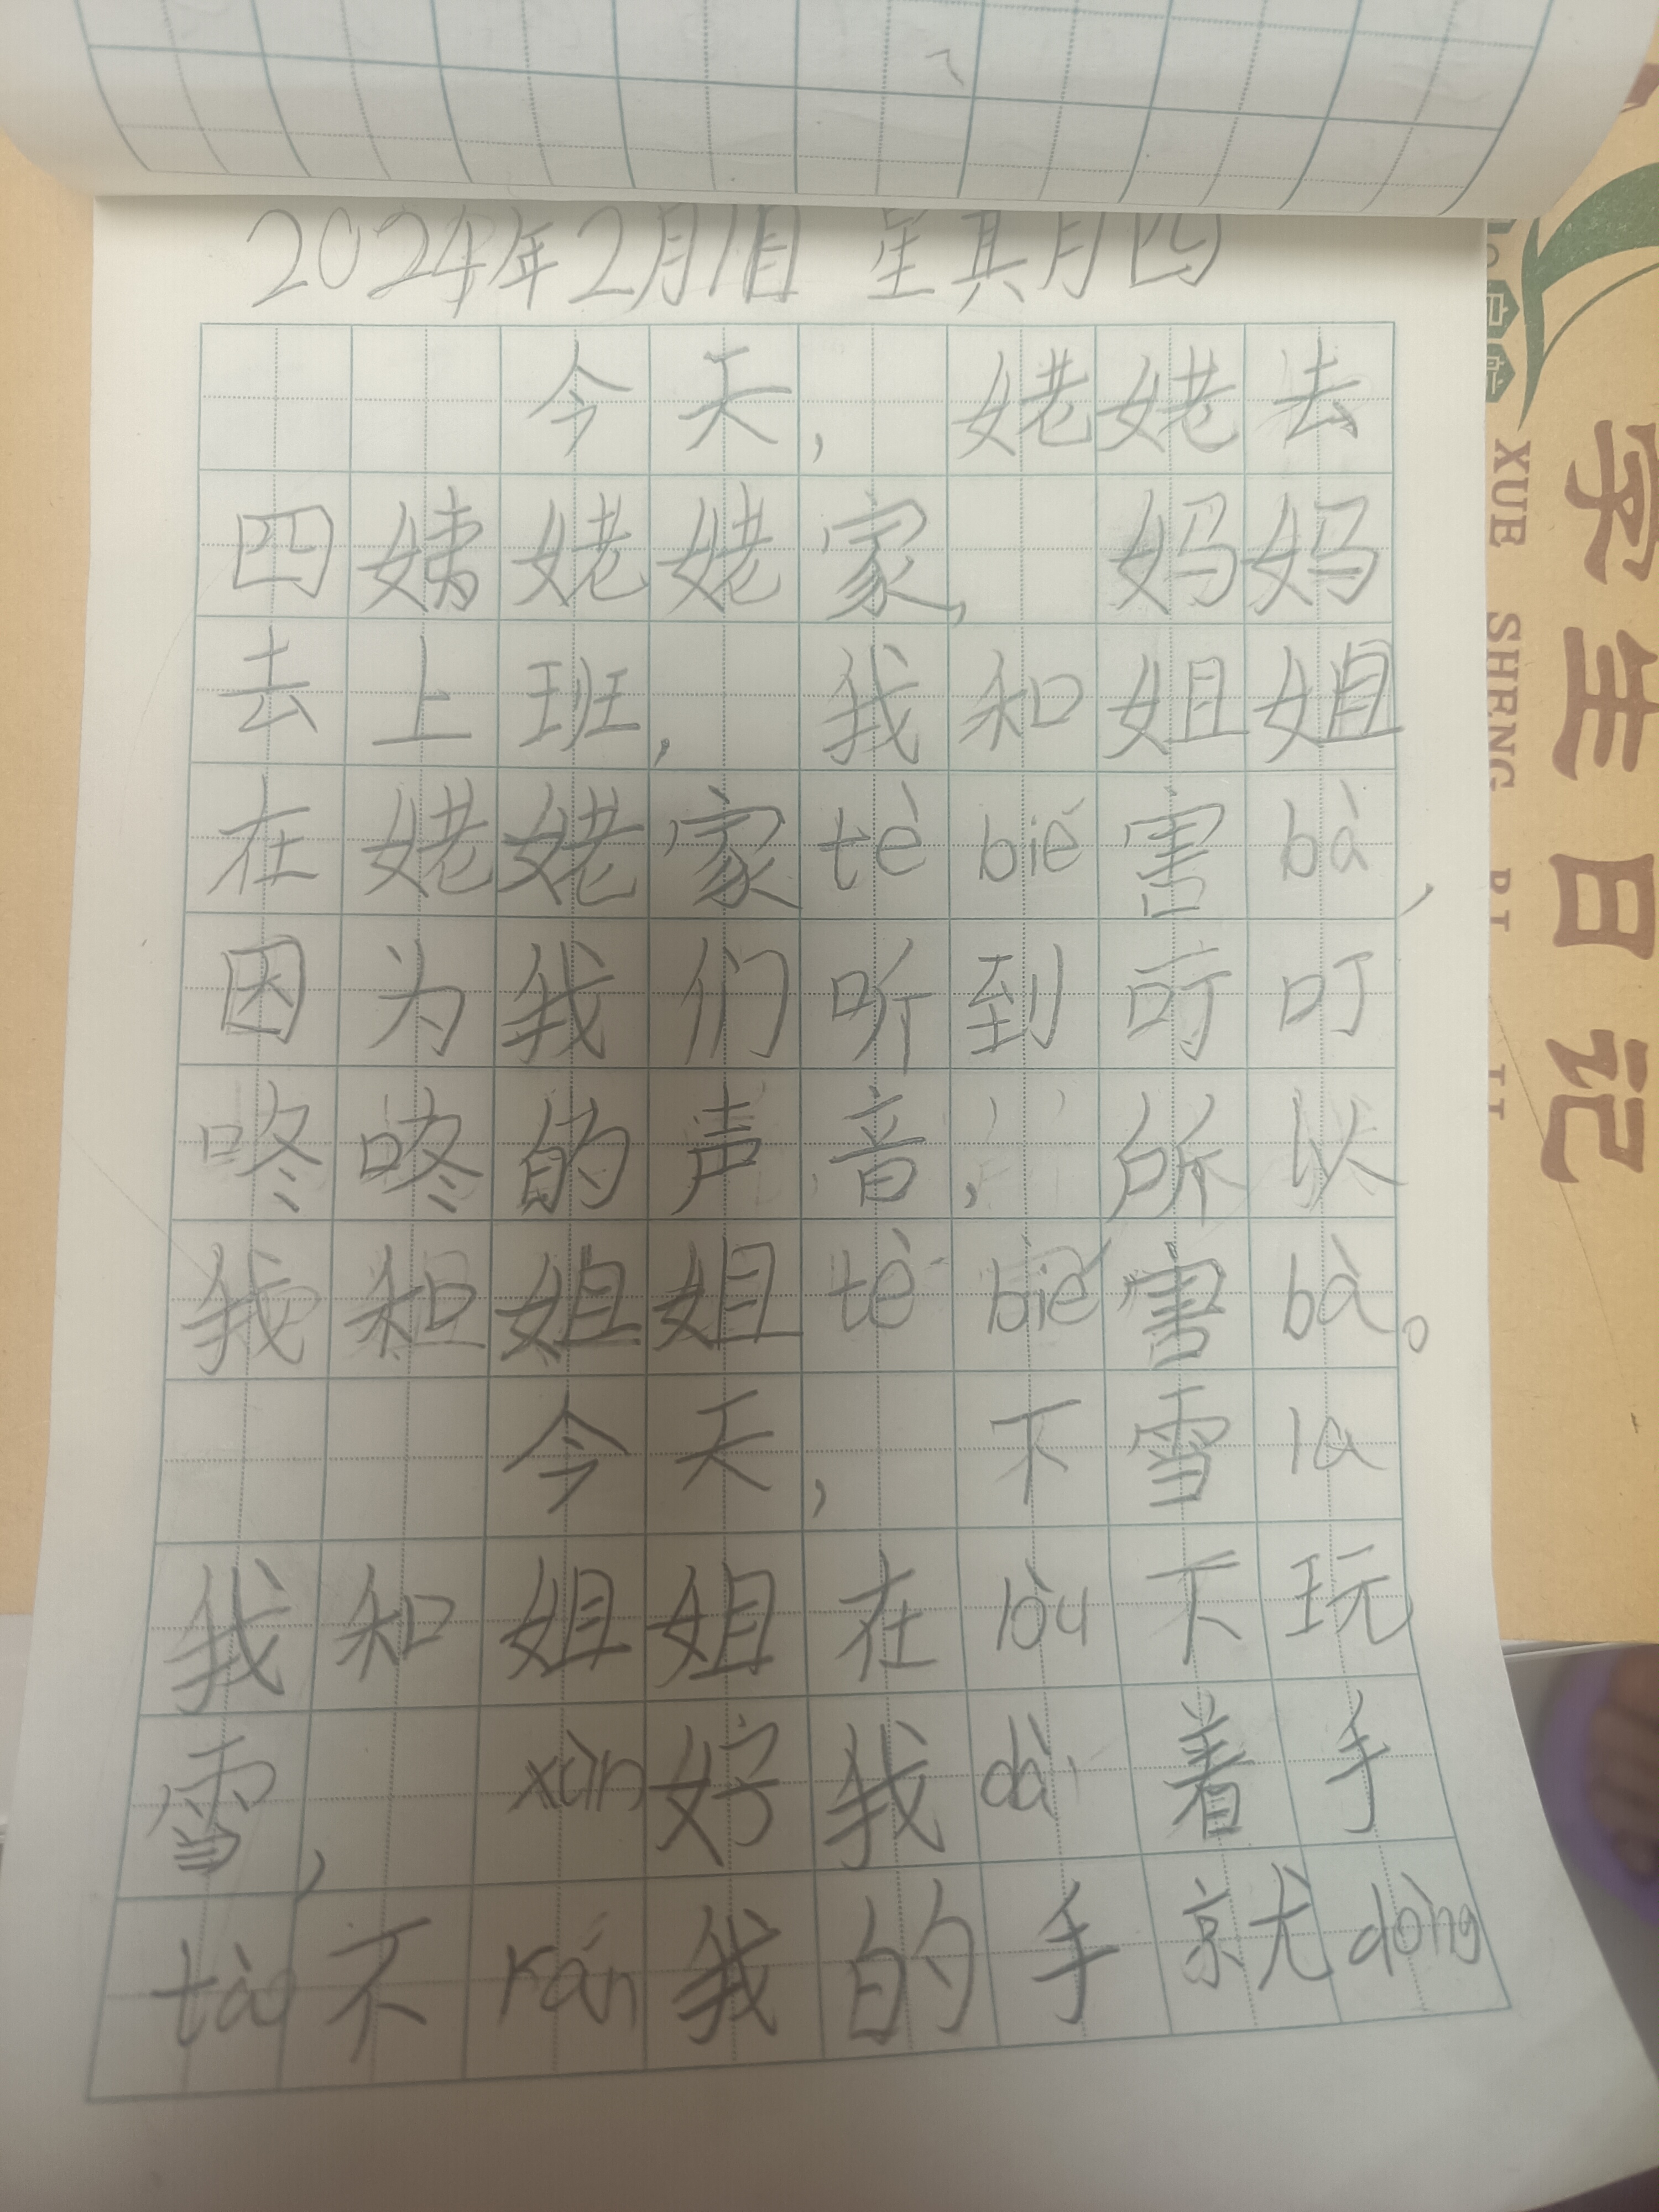 2024年2月1日 星其月四
今天，姥姥去
四姨姥姥家，妈妈
去上班，我和姐姐
在姥姥家tè bié害bà，
因为我们听到叮叮
咚咚的声音，所以
我和姐姐tè bié害bà。
今天，下雪la
我和姐姐在lóu下玩
雪，xìn好我dài着手
tào不rán我的手就dòng
学生日记
XUE SHENG RI JI